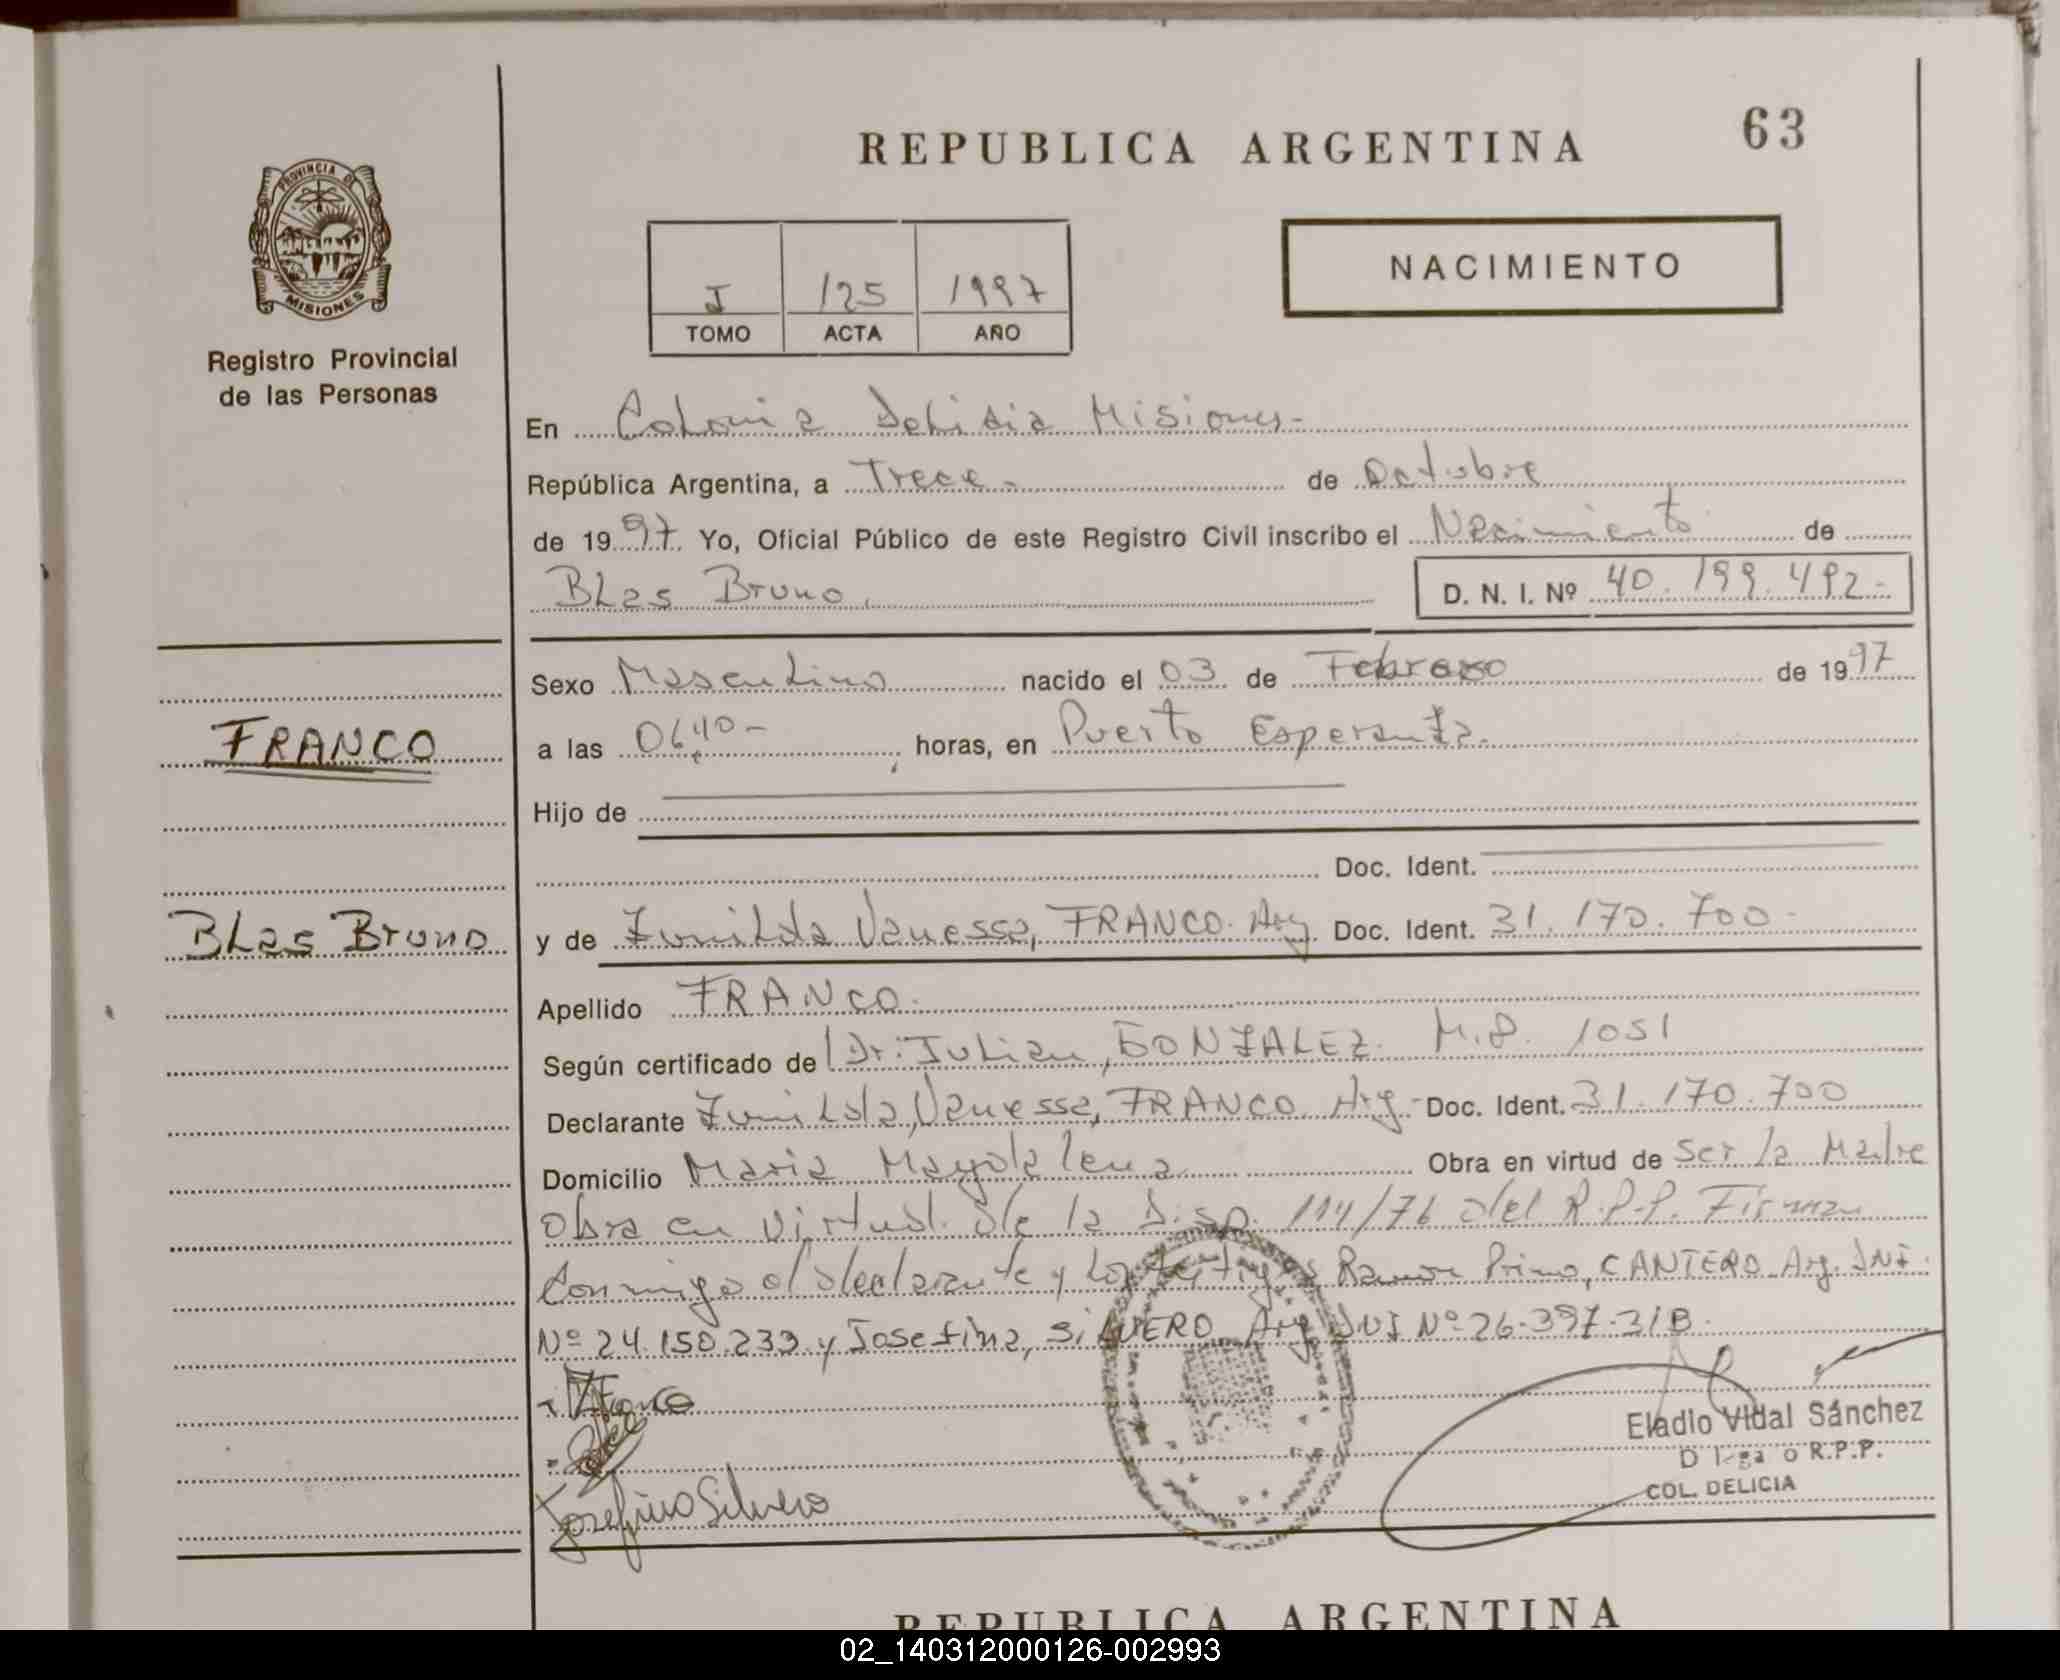 REPUBLICA ARGENTINA
63
PROVINCIA DE
MISIONES
Registro Provincial
de las Personas
I 125 1997
TOMO ACTA AÑO
NACIMIENTO
En Colonia Delisia Misiones-
República Argentina, a Trece- de Octubre
de 1997. Yo, Oficial Público de este Registro Civil inscribo el Nacimiento de
BLas Bruno. D. N. I. Nº 40.199.492-
Sexo Masculino nacido el 03 de Febrero de 1997
FRANCO
a las 06,40- horas, en Puerto Esperanza.
Hijo de
Doc. Ident.
BLas Bruno
y de Zunilda Vanessa, FRANCO. Arg. Doc. Ident. 31.170.700-
Apellido FRANCO.
Según certificado de Dr: Julian, GONZALEZ. M.P. 1051
Declarante Zunilda, Vanessa, FRANCO Arg.- Doc. Ident. 31.170.700
Domicilio Maria Magdalena Obra en virtud de ser la Madre
Obra en virtud. de la Disp. 114/76 del R.P.P. Firman
Conmigo el declarante y los testigos Ramon Primo, CANTERO Arg. DNI.
Nº 24.150.233 y Josefina, SiLVERO Arg DNI Nº 26.397.318.
ZFranco
Josefina Silvero
Eladio Vidal Sánchez
R.P.P.
COL. DELICIA
REPUBLICA ARGENTINA
02_140312000126-002993